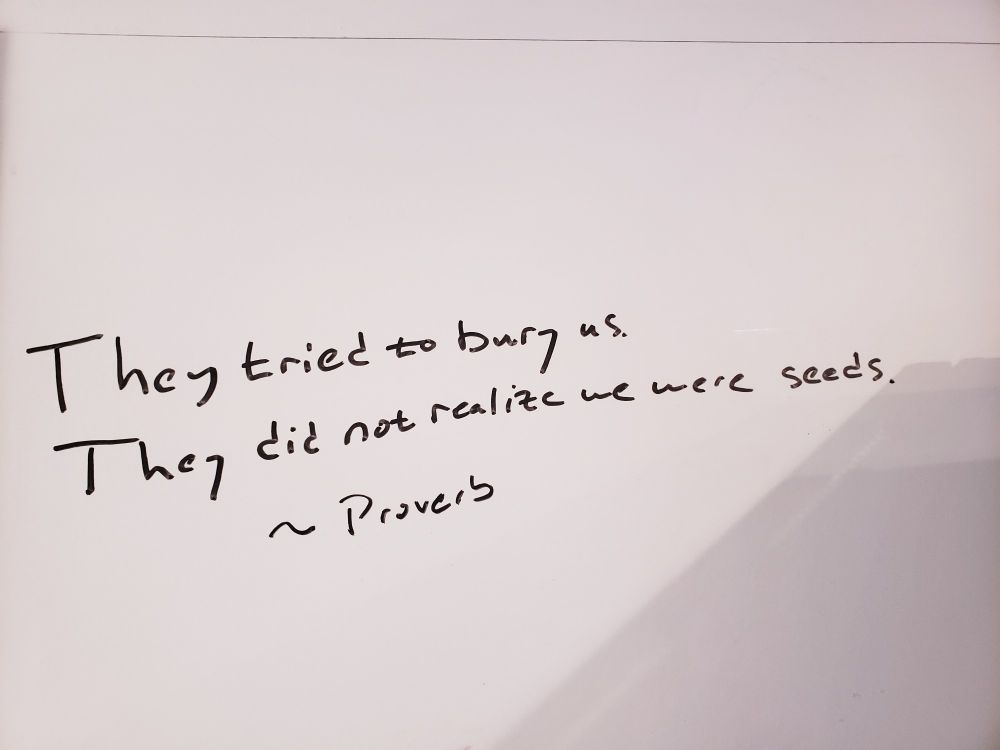 They tried to bury us.
They did not realize we were seeds.
~ Proverb